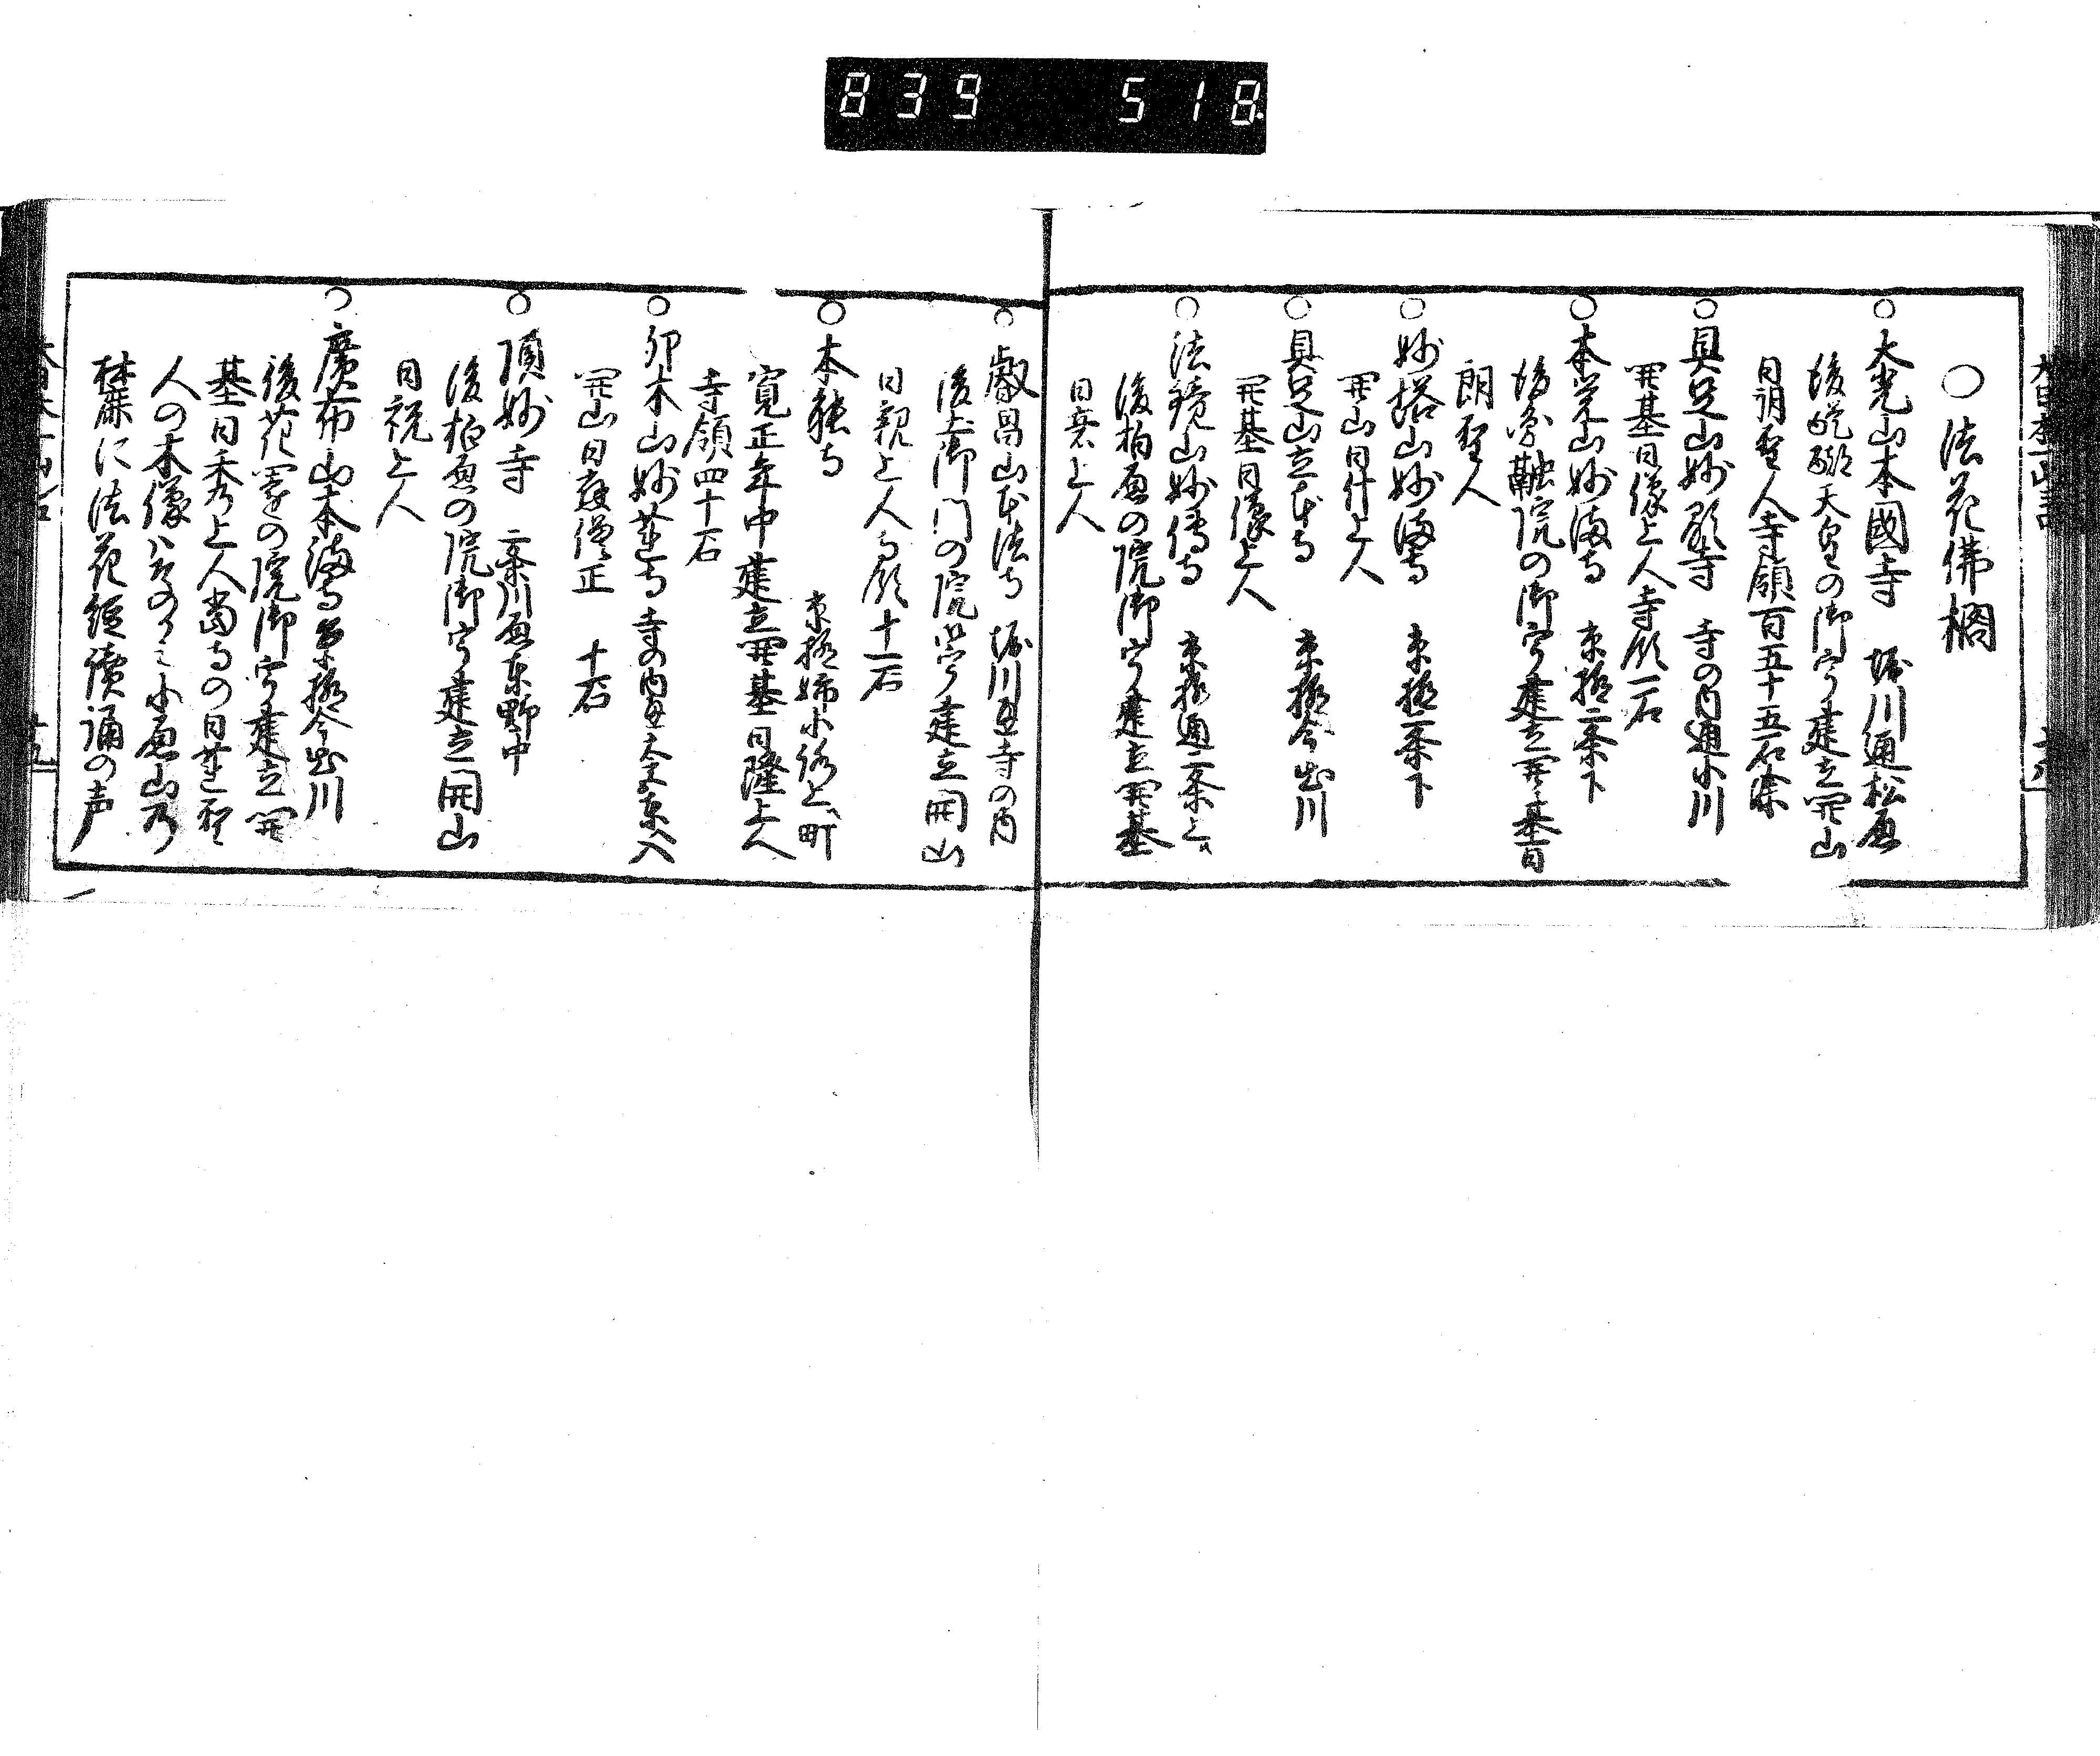 839 518
○法花佛閣
○大光山本國寺 堀川通松原
後醍醐天皇の御宇建立開山
日朗聖人寺領百五十五石余
○具足山妙顕寺 寺の内通小川
開基日像上人寺領一石
○本覚山妙満寺 京極二条下
後魚融院の御宇建立開基日
朗聖人
○妙塔山妙満寺 京極二条下
開山日什上人
○具足山立本寺 京極今出川
開基日像上人
○法鏡山妙傳寺 京極通二条上ル
後柏原の院御宇建立開基
日意上人
○叡昌山本法寺 堀川通寺の内
後土御門の院御宇建立開山
日親上人寺領十一石
○本能寺 京極姉小路上ル町
寛正年中建立開基日隆上人
寺領四十石
○卯木山妙蓮寺 寺の内通大宮東入
開山日応僧正 十石
○頂妙寺 二条川原東野中
後柏原の院御宇建立開山
日祝上人
○廣布山本満寺 京極今出川
後花園の院御宇建立開
基日秀上人當寺の日蓮聖
人の木像ハ小原山乃
林藤に法花経讀誦の声